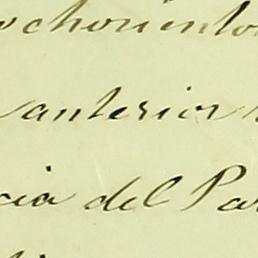 ochocientos
anterior
cia del Par